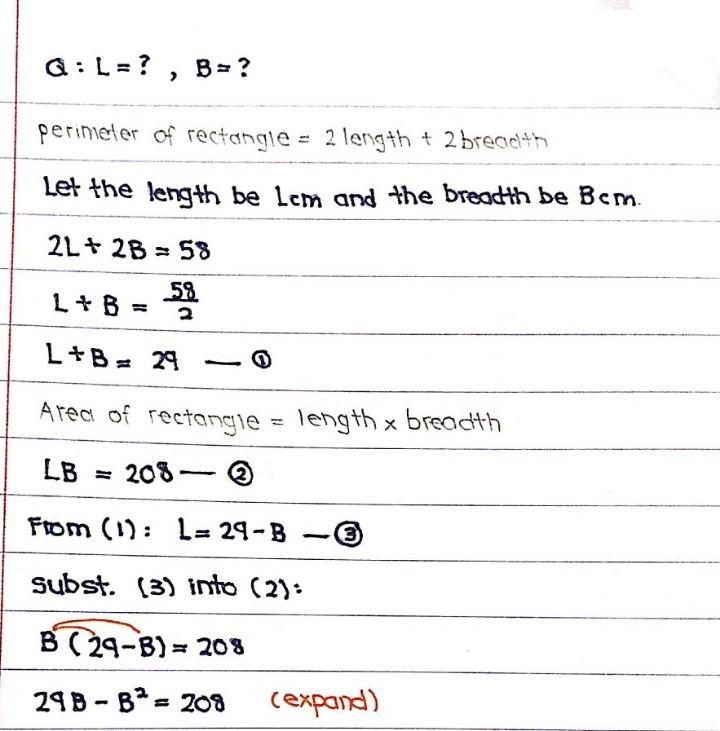 Q : L = ? , B = ?
perimeter of rectangle = 2 length + 2 breadth
Let the length be Lcm and the breadth be Bcm.
2L + 2B = 58
L + B = 58/2
L + B = 29 — ①
Area of rectangle = length x breadth
LB = 208 — ②
From (1): L = 29 - B — ③
subst. (3) into (2):
B (29-B) = 208
29B - B² = 208 (expand)